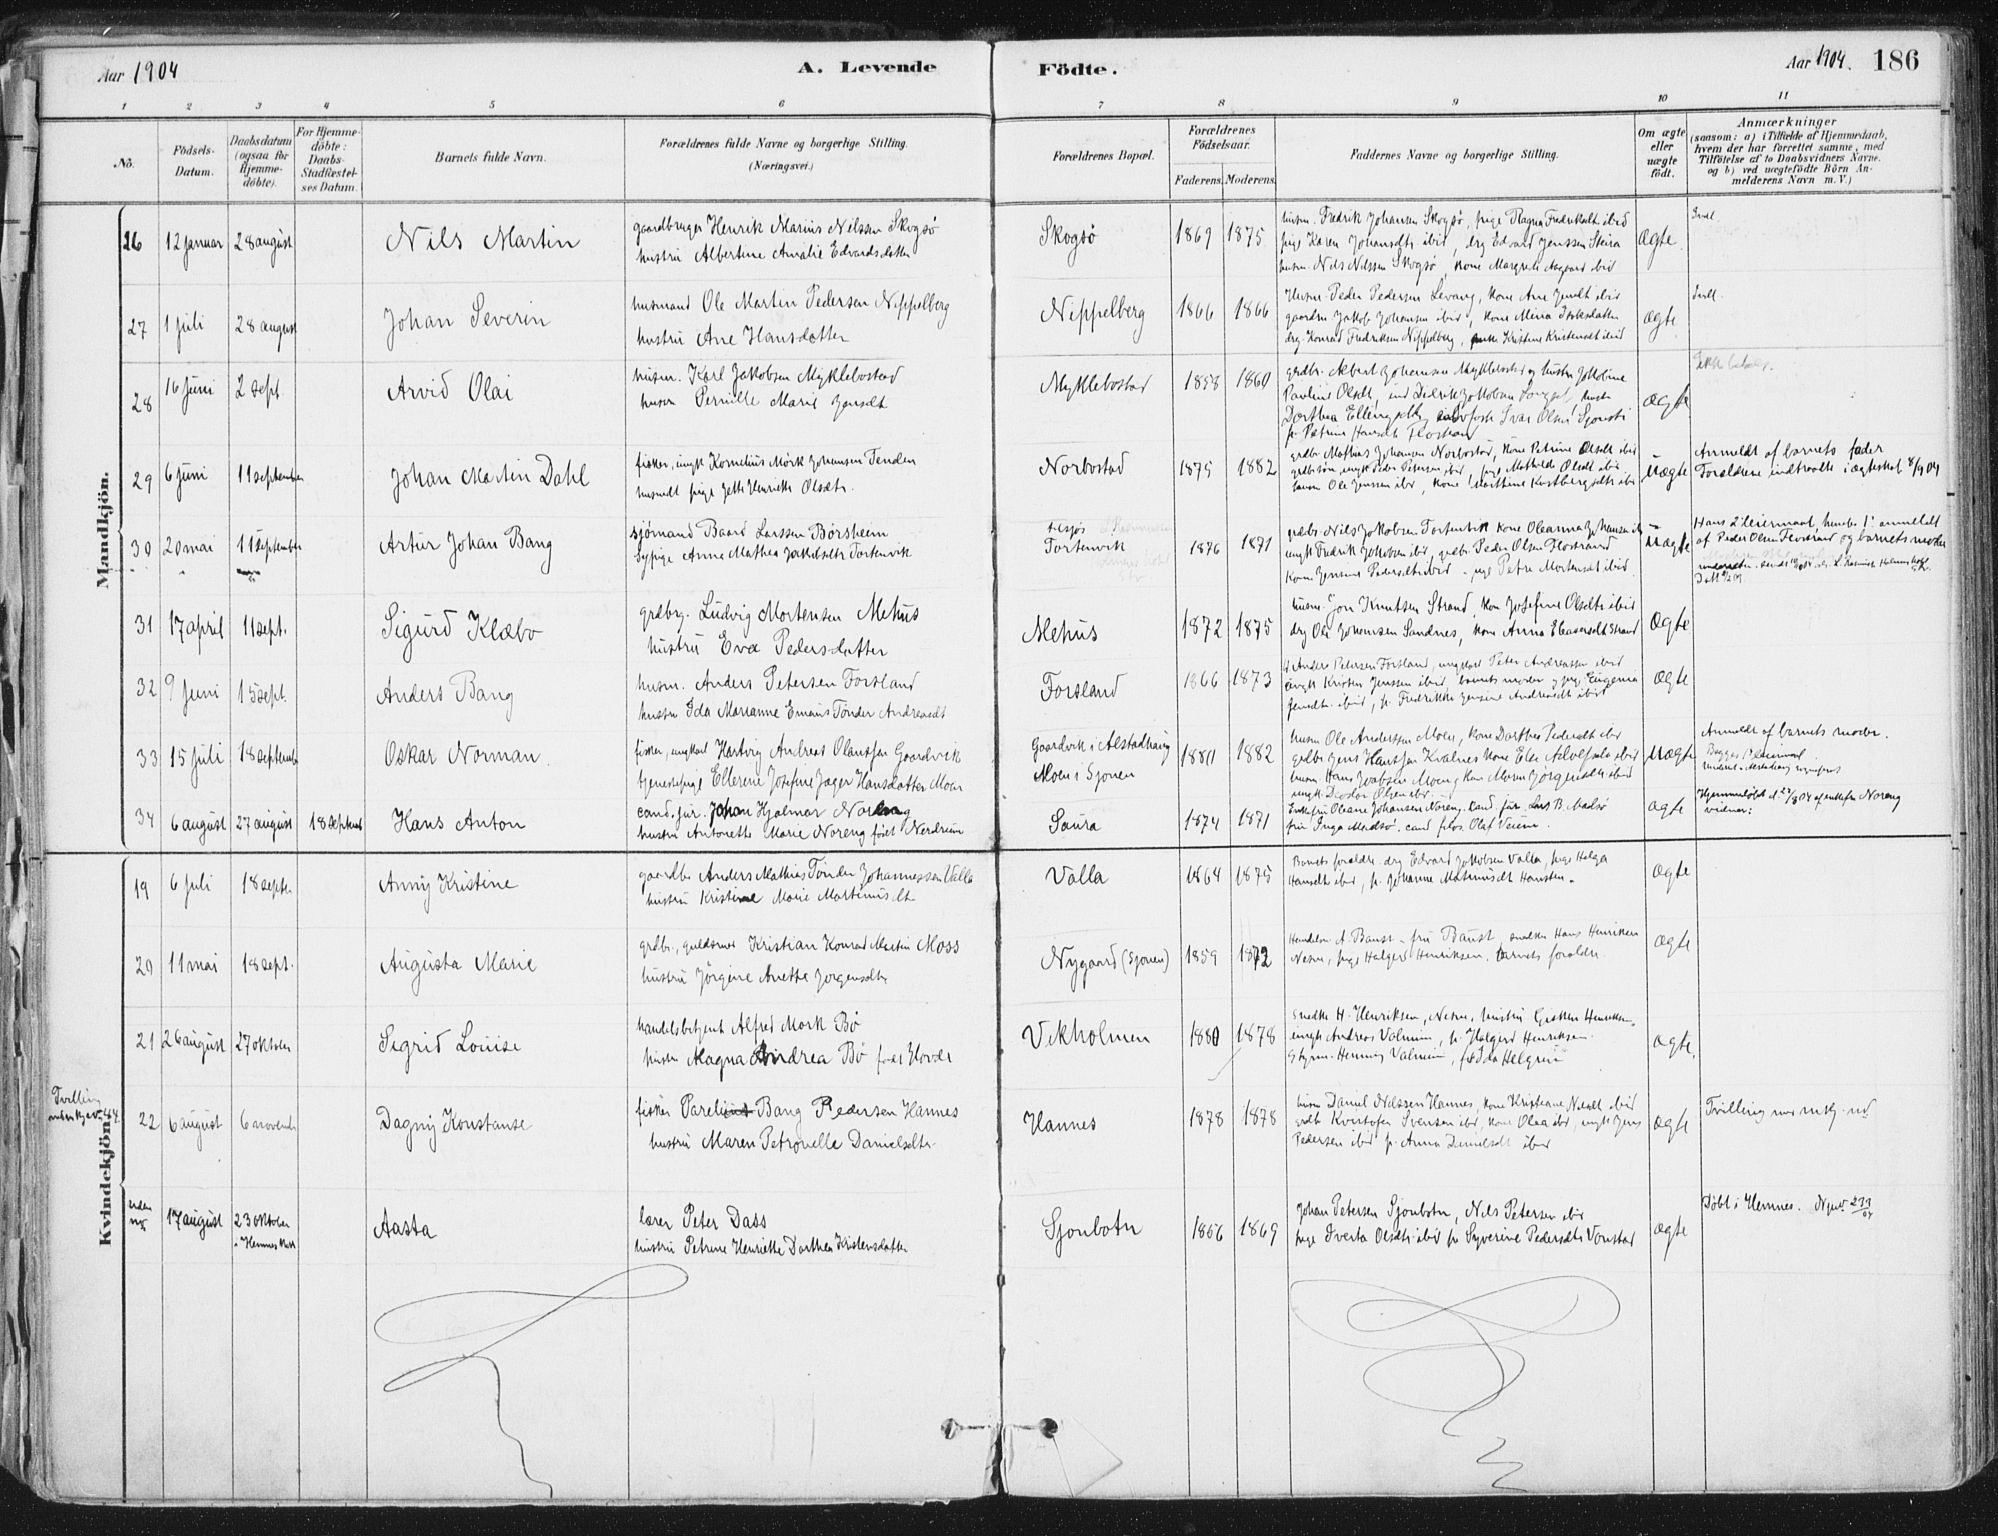 Aar 1904
A. Levende
Födte.
Aar 1904. 186
1 2 3 4 5 6 7 8 9 10 11
No.
Födsels-Datum.
Daabsdatum (ogsaa for Hjemme-döbte).
For Hjemme-döbte: Daabs-Stadfæstel-ses Datum.
Barnets fulde Navn.
Forældrenes fulde Navne og borgerlige Stilling. (Næringsvei.)
Forældrenes Bopæl.
Forældrenes Födselsaar.
Faderens. Moderens.
Faddernes Navne og borgerlige Stilling.
Om ægte eller uægte födt.
Anmærkninger
(saasom: a) i Tilfælde af Hjemmedaab,
hvem der har forrettet samme, med
Tilföielse af to Daabsvidners Navne.
og b) ved uægtefödte Börn An-
melderens Navn m. V.)
Mandkjön.
26 12 januar 28 august Nils Martin
gaardbruger Henrik Marius Nilssen Skogsø
hustru Albertine Amalie Edvardsdatter
Skogsø 1869 1875
husm. Fredrik Johansen Skogsø, pige Ragna Fredriksdt ibid
pige Karen Johansdtr ibid, drg Edvard Jenssen Steira
husm. Nils Nilssen Skogsø, kone Margrete Aagaard ibid
Ægte.
27 1 juli 28 august Johan Severin
husmand Ole Martin Pedersen Nippelberg
hustru Ane Hansdatter
Nippelberg 1866 1866
Husm. Peder Pedersen Levang, kone Ane ibid
Jakob Johansen ibid, kone Mina
drg. Konrad Fredriksen Nippelberg, Kristine ibid
Ægte
28 16 juni 2 sept. Arvid Olai
husm. Karl Jakobsen Myklebostad
hustru Pernille Marie Jensdt
Myklebostad 1858 1860
grdbr. Albert Johansen Myklebostad og hustru Jakobine
Pauline Olsdt,
Dorthea Ivar Olsen
Petrine Hansdt Flostrand
Ægte
29 6 juni 11 september Johan Martin Dahl
fisker, ungk Kornelius Mörk Johansen Tenden
pige Jette Henriette Olsdtr.
Norbostad 1875 1882
grdbr Mathias Johansen Norbostad, kone Petrine Olsdt ibid
ungk Peder Petersen ibid, pige Mathilde Olsdt ibid
Ole Jenssen ibid, kone Marthine ibid
Uægte
Anmeldt af barnets fader
Forældrene indtraadte i ægteskab 8/1 04
30 20 mai 11 september Artur Johan Bang
sjømand Baard Larssen Børsheim
Sypige Anne Mathea Jakobsdtr Fortenvik
Fortenvik 1876 1871
grdbr Nils Jakobsen Fortenvik kone Oleanna Johansen ib
ungk Fredrik Jakobsen ibid, grdbr. Peder Olsen Flostrand
Kone Jensine Pedersdtr ibid - pige Petra Mortensdt ibid
Uægte
Hans 2 leiermaal, hendes 1. anmeldt
af Peder Olsen Flostrand og barnets moder
31 17 april 11 sept. Sigurd Klæbo
grdbrg. Ludvig Mortensen Mehus
hustru Eva Pedersdatter
Mehus 1872 1875
husm. Jon Knutsen Strand, kone Josefine Olsdtr ibid
drg Ole Johansen Sandnes, kone Anna Eleasersdt Strand
Ægte
32 9 juni 15 sept. Anders Bang
husm. Anders Petersen Forsland
hustru Ida Marianne Emaus Tönder Andreasdt
Forsland 1866 1873
Anders Petersen Forsland, ungkarl Peter Andreassen ibid
ungk Kristen Jenssen ibid barnets moder og pige Eugenia
Jensdtr ibid, p. Fredrikke Jensine Andreasdt ibid
Ægte
33 15 juli 18 september Oskar Norman.
fisker, ungkarl Hartvig Andreas Olaussen Gaardvik
tjenestepige Ellerene Josefine Jæger Hansdatter Moen
Gaardvik i Alstadhaug
Moen i Sjonen
1880 1882
husm Ole Anderssen Moen, kone Dorthea Pedersdt ibid
grdbr Jens Hanssen Kvalnes kone Else Adolfsdt ibid
husm Hans Jakobsen Moen, kone Maren Jörgensdtr ibid
ungk. Diodor Olsen ibid
Uægte
Anmeldt af barnets moder.
34 6 august 27 august 18 september Hans Anton
cand. jur. Johan Hjalmar Noreng
hustru Antonette Marie Noreng født Nerdrum
Saura 1874 1871
Enkefru Oleane Johansen Noreng. Cand. jur. Lars B. Madsø
fru Inga Madsø. cand. filos. Olaf Veum.
Ægte
Hjemmedöbt d. 27/8 04 af enkefru Noreng
vidner:
Kvindekjön.
19 6 juli 18 septr. Anny Kristine
gaardbr Anders Mathias Tönder Johannessen Valla
hustru Kristine Marie Martinusdt.
Valla 1864 1875
Barnets forældre. drg Edvard Jakobsen Valla, pige Helga
Hansdt ibid, p. Johanne Hansten.
Ægte
20 11 mai 18 sept. Augusta Marie
grdbr., guldsmed Kristian Konrad Martin Moss
hustru Jörgine Anette Jörgensdtr
Nygaard (Sjonen) 1859 1872
Handelsm. A. Baust - fru Baust snedker Hans Henriksen
Nesna, pige Halgerd Henriksen. barnets forældre.
Ægte
21 26 august 27 oktober Sigrid Louise
handelsbetjent Alfred Mork Bø
hustru Magna Andrea Bø født Hovde
Vikholmen 1880 1878
Snedker H. Henriksen, Nesna, hustru Gisken Henriksen,
ungk Andreas Valmum, p. Halgerd Henriksen.
Styrm. Henning Valmum, frk Ida Helgrem
Ægte.
Tvilling
22 6 august 6 november Dagny Konstanse
fisker Parelius Bang Pedersen Hannes
hustru Maren Petronelle Danielsdtr.
Hannes 1878 1878
husm Daniel Nilssen Hannes, kone Kristiane Nilsdt ibid
grdbr Kristofer Svensen ibid, kone Olea ibid, ungk Jens
Pedersen ibid p. Anna Danielsdt ibid
Ægte
Tvilling
uden no. 17 august 23 oktober i Hemnes kirke Aasta
lærer Peter Dass
hustru Petrine Henriette Dorthea Kristensdatter
Sjonbotn 1866 1869
Johan Petersen Sjonbotn, Nils Petersen ibid
pige Iverta Olsdtr ibid p. Syverine Pedersdtr Vonstad
Ægte
Døbt i Hemnes.